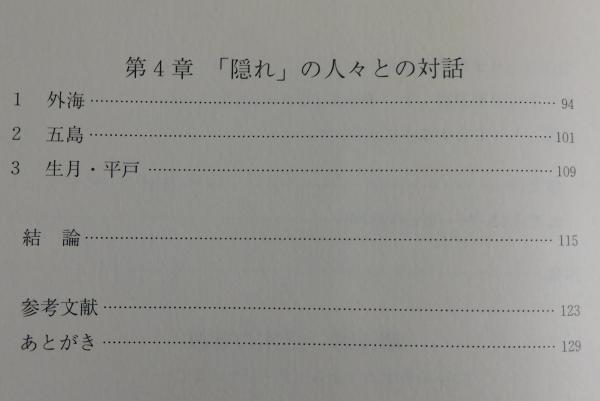 第4章 「隠れ」の人々との対話
1 外海 94
2 五島 101
3 生月・平戸 109
結 論 115
参考文献 123
あとがき 129